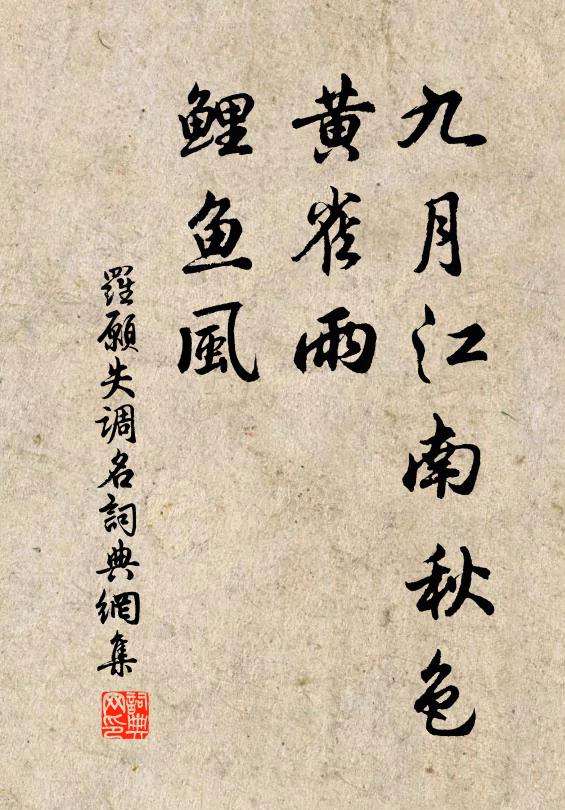 九月江南秋色
黄雀雨
鲤鱼風
羅愿失调名詞典網集
詞典网印